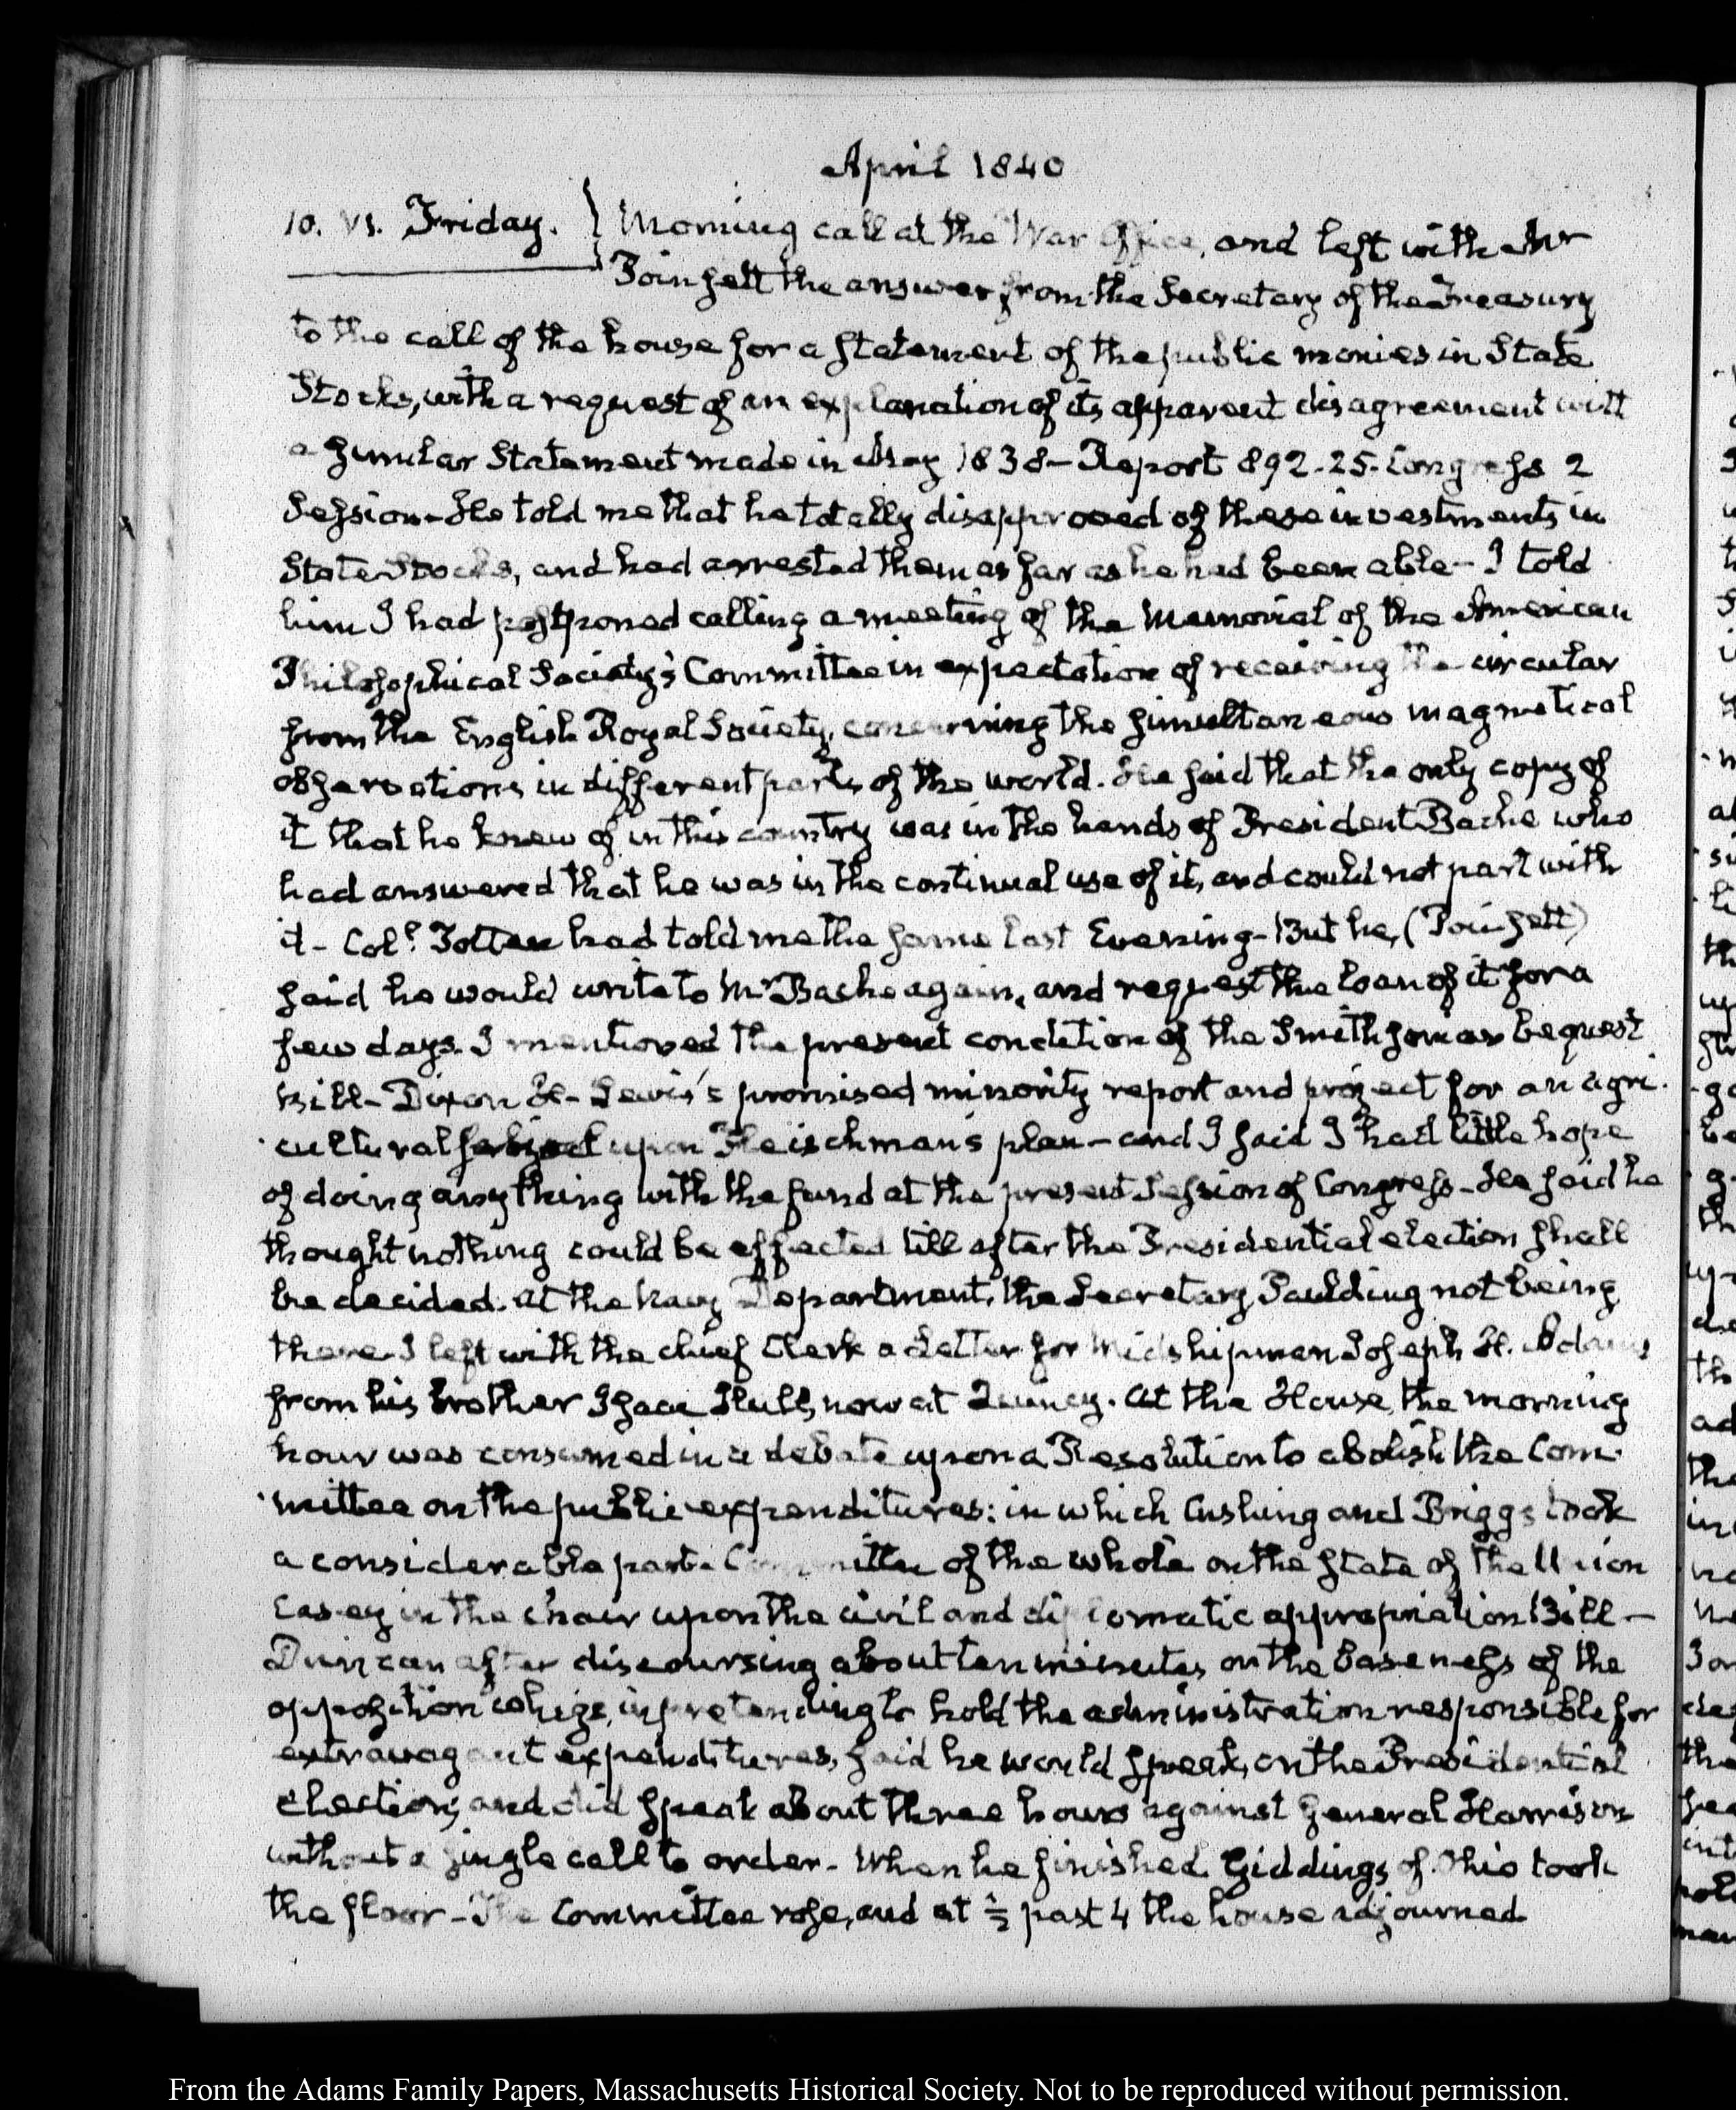 April 1840
10. VI. Friday. } Morning call at the War Office, and left with Mr
Poinsett the answer from the Secretary of the Treasury
to the call of the house for a statement of the public monies in State
Stocks, with a request of an explanation of its apparent disagreement with
a similar Statement made in May 1838 – Report 892. 25. Congress 2
Session – He told me that he totally disapproved of these investments in
State Stocks, and had arrested them as far as he had been able – I told
him I had postponed calling a meeting of the Memorial of the American
Philosophical Society's Committee in expectation of receiving the circular
from the English Royal Society, concerning the simultaneous magnetical
observations in different parts of the world. He said that the only copy of
it that he knew of in this country was in the hands of President Bache who
had answered that he was in the continual use of it, and could not part with
it – Col.l Totten had told me the same last Evening – But he, (Poinsett)
said he would write to Mr Bache again, and request the loan of it for a
few days. I mentioned the present condition of the Smithsonian bequest
bill – Dixon H. Lewis's promised minority report and project for an agri-
cultural school upon Fleischman's plan – and I said I had little hope
of doing any thing with the fund at the present Session of Congress – He said he
thought nothing could be effected till after the Presidential election shall
be decided. At the Navy Department, the Secretary Paulding not being
there I left with the chief Clerk a Letter for Midshipman Joseph H. Adams
from his brother Isaac Hull, now at Quincy. At the House, the morning
hour was consumed in a debate upon a Resolution to abolish the Com-
mittee on the public expenditures: in which Cushing and Briggs took
a considerable part. Committee of the whole on the state of the Union
Casey in the chair upon the civil and diplomatic appropriation Bill –
Duncan after discoursing about ten minutes, on the baseness of the
opposition whigs, in pretending to hold the administration responsible for
extravagant expenditures, said he would speak, on the Presidential
election; and did speak about three hours against General Harrison
without a single call to order. When he finished Giddings of Ohio took
the floor – The Committee rose, and at ½ past 4 the house adjourned
From the Adams Family Papers, Massachusetts Historical Society. Not to be reproduced without permission.